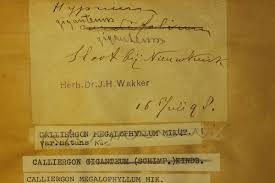 Hypnum
giganteum
giganteum
Sloot bij Nieuwkuik
Herb. Dr. J.H. Wakker
16 Juli 98.
CALLIERGON MEGALOPHYLLUM MIK.
var. natans
CALLIERGON GIGANTEUM (SCHIMP.) KINDB.
CALLIERGON MEGALOPHYLLUM MIK.